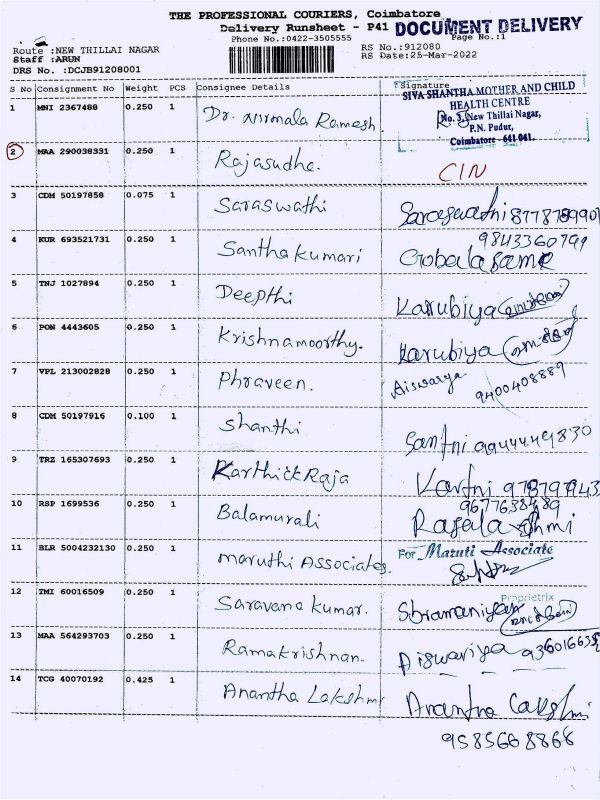 THE PROFESSIONAL COURIERS, Coimbatore
Delivery Runsheet - P41 DOCUMENT DELIVERY
Phone No.:0422-3505555 Page No.:1
Route :NEW THILLAI NAGAR RS No.:912080
Staff :ARUN RS Date:25-Mar-2022
DRS No. :DCJB91208001
S No Consignment No Weight PCS Consignee Details Signature
SIVA SHANTHA MOTHER AND CHILD
HEALTH CENTRE
No. 3, New Thillai Nagar,
P.N. Pudur,
Coimbatore - 641 041.
1 MNI 2367488 0.250 1 Dr. Nirmala Ramesh.
2 MAA 290038331 0.250 1 Rajasudha. CIN
3 CDM 50197858 0.075 1 Saraswathi Saraswathi
4 KUR 693521731 0.250 1 Santhakumari 9843360799
5 TNJ 1027894 0.250 1 Deepthi Karubiya
6 PON 4443605 0.250 1 Krishnamoorthy. Karubiya
7 VPL 213002828 0.250 1 Phraveen. Aiswarya 9400408889
8 CDM 50197916 0.100 1 Shanthi
9 TRZ 165307693 0.250 1 Karthick Raja
10 RSP 1699536 0.250 1 Balamurali
11 BLR 5004232130 0.250 1 Maruthi Associates. For Maruti Associate
Proprietrix
12 TMI 60016509 0.250 1 Saravana kumar.
13 MAA 564293703 0.250 1 Ramakrishnan. Aiswariya
14 TCG 40070192 0.425 1 Anantha Lakshmi Anantha Lakshmi
9585668866